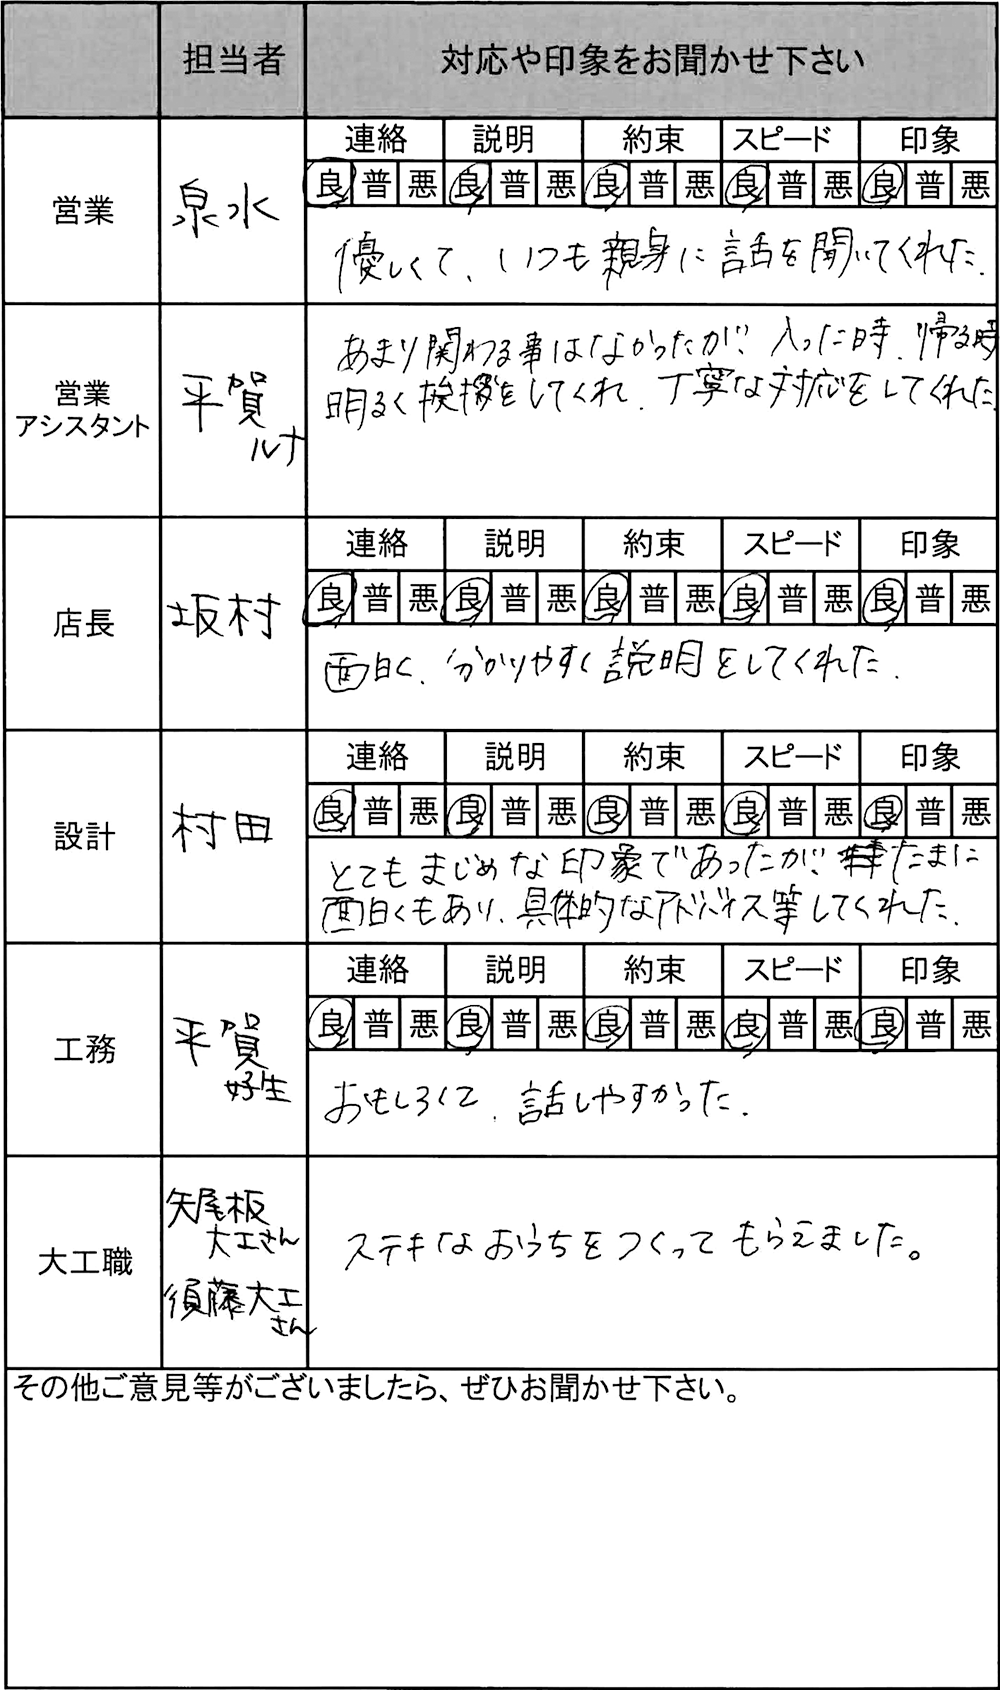 担当者 対応や印象をお聞かせ下さい
連絡 説明 約束 スピード 印象
営業 泉水 良 普 悪 良 普 悪 良 普 悪 良 普 悪 良 普 悪
優しくて、いつも親身に話を聞いてくれた.
営業
アシスタント
平賀
ルナ
あまり関わる事はなかったが、入った時、帰る時
明るく挨拶をしてくれ、丁寧な対応をしてくれた
連絡 説明 約束 スピード 印象
店長 坂村 良 普 悪 良 普 悪 良 普 悪 良 普 悪 良 普 悪
面白く、分かりやすく説明をしてくれた.
連絡 説明 約束 スピード 印象
設計 村田 良 普 悪 良 普 悪 良 普 悪 良 普 悪 良 普 悪
とてもまじめな印象であったが、たまに
面白くもあり、具体的なアドバイス等してくれた.
連絡 説明 約束 スピード 印象
工務 平賀 良 普 悪 良 普 悪 良 普 悪 良 普 悪 良 普 悪
好生
おもしろくて、話しやすかった.
大工職
矢尾板
大工さん
須藤大工
さん
ステキなおうちをつくってもらえました。
その他ご意見等がございましたら、ぜひお聞かせ下さい。